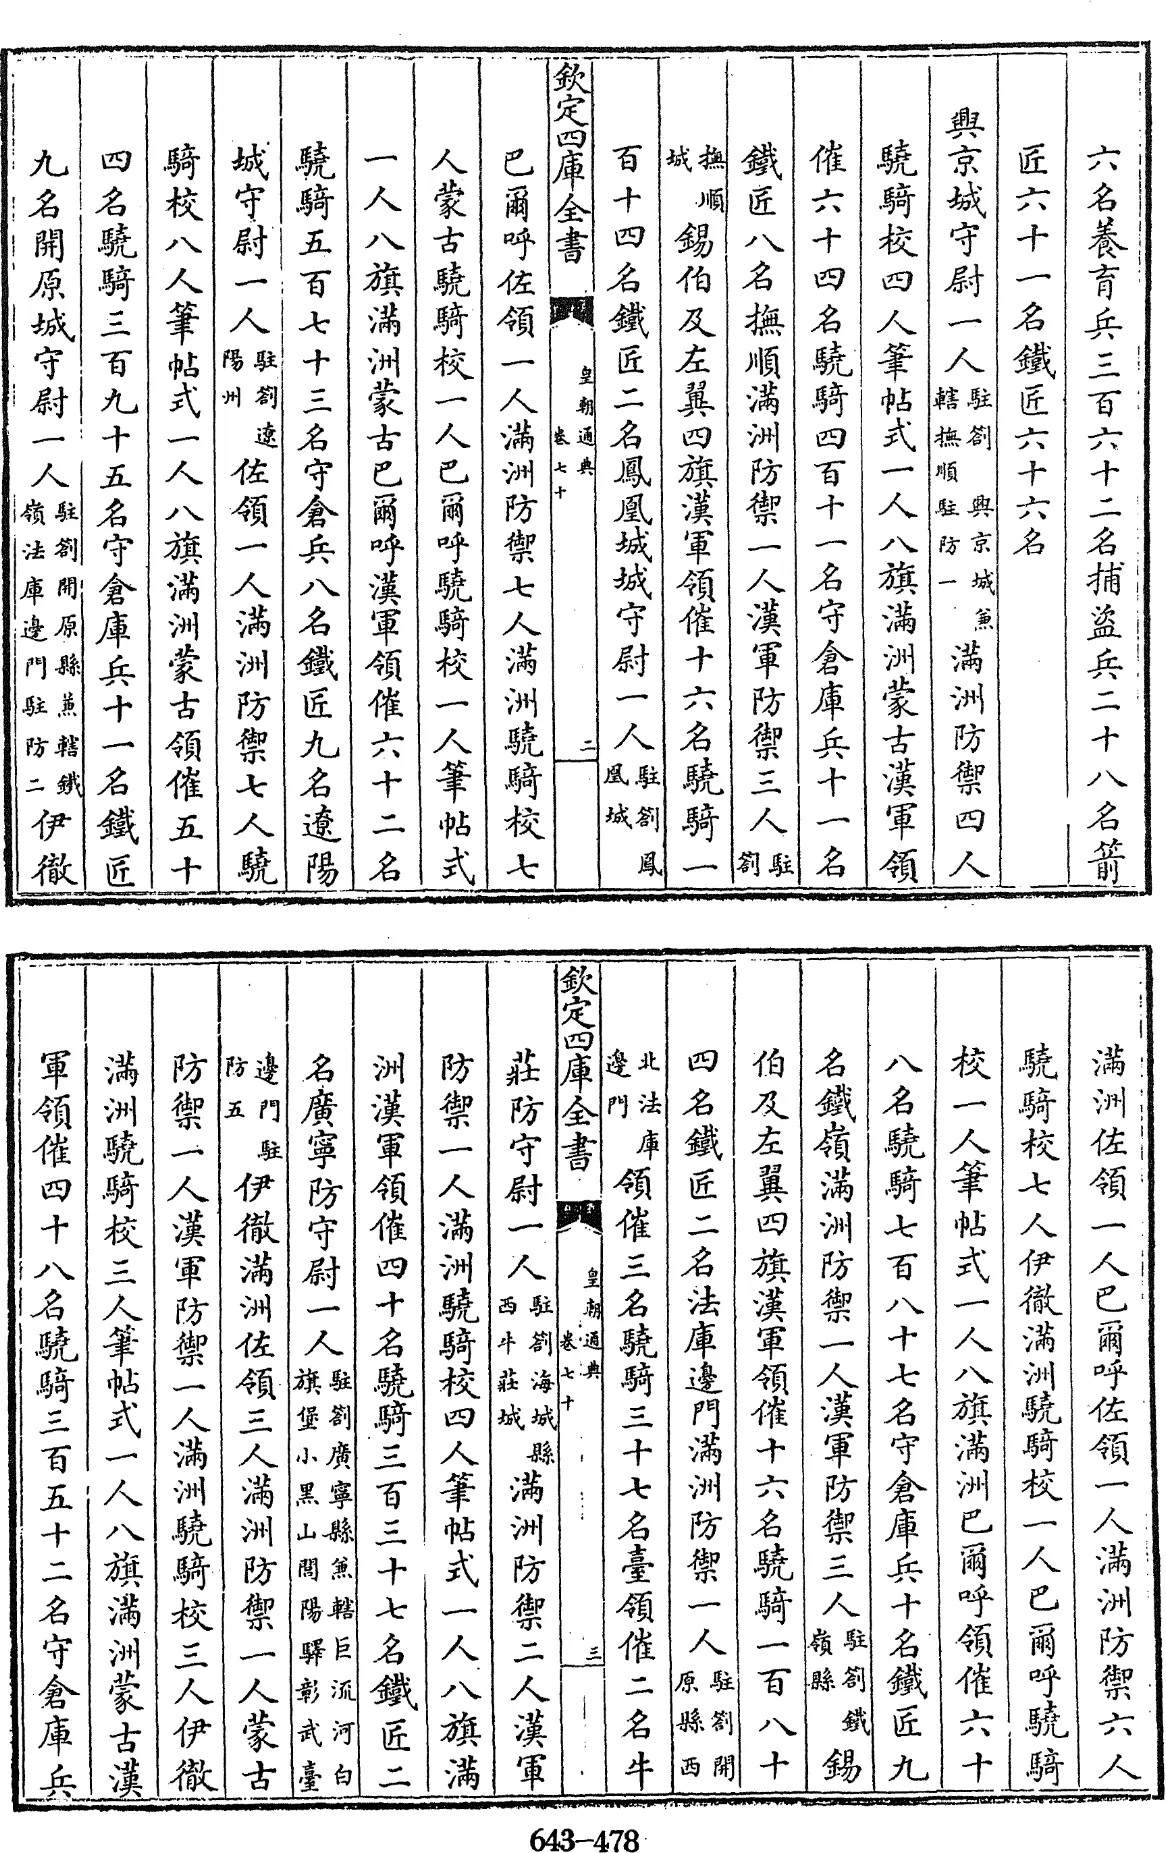 六名養育兵三百六十二名捕盜兵二十八名箭
匠六十一名鐵匠六十六名
興京城守尉一人駐劄興京城兼轄撫順駐防一滿洲防禦四人
驍騎校四人筆帖式一人八旗滿洲蒙古漢軍領
催六十四名驍騎四百十一名守倉庫兵十一名
鐵匠八名撫順滿洲防禦一人漢軍防禦三人駐劄
撫順城錫伯及左翼四旗漢軍領催十六名驍騎一
百十四名鐵匠二名鳳凰城城守尉一人駐劄鳳凰城
欽定四庫全書
皇朝通典
卷七十
二
巴爾呼佐領一人滿洲防禦七人滿洲驍騎校七
人蒙古驍騎校一人巴爾呼驍騎校一人筆帖式
一人八旗滿洲蒙古巴爾呼漢軍領催六十二名
驍騎五百七十三名守倉兵八名鐵匠九名遼陽
城守尉一人駐劄遼陽州佐領一人滿洲防禦七人驍
騎校八人筆帖式一人八旗滿洲蒙古領催五十
四名驍騎三百九十五名守倉庫兵十一名鐵匠
九名開原城守尉一人駐劄開原縣兼轄鐵嶺法庫邊門駐防二伊徹
滿洲佐領一人巴爾呼佐領一人滿洲防禦六人
驍騎校七人伊徹滿洲驍騎校一人巴爾呼驍騎
校一人筆帖式一人八旗滿洲巴爾呼領催六十
八名驍騎七百八十七名守倉庫兵十名鐵匠九
名鐵嶺滿洲防禦一人漢軍防禦三人駐劄鐵嶺縣錫
伯及左翼四旗漢軍領催十六名驍騎一百八十
四名鐵匠二名法庫邊門滿洲防禦一人駐劄開原縣西
北法庫邊門領催三名驍騎三十七名臺領催二名牛
欽定四庫全書
皇朝通典
卷七十
三
莊防守尉一人駐劄海城縣西牛莊城滿洲防禦二人漢軍
防禦一人滿洲驍騎校四人筆帖式一人八旗滿
洲漢軍領催四十名驍騎三百三十七名鐵匠二
名廣寧防守尉一人駐劄廣寧縣兼轄巨流河白旗堡小黑山閭陽驛彰武臺
邊門駐防五伊徹滿洲佐領三人滿洲防禦一人蒙古
防禦一人漢軍防禦一人滿洲驍騎校三人伊徹
滿洲驍騎校三人筆帖式一人八旗滿洲蒙古漢
軍領催四十八名驍騎三百五十二名守倉庫兵
643-478